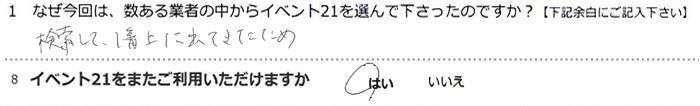 1 なぜ今回は、数ある業者の中からイベント21を選んで下さったのですか？【下記余白にご記入下さい】
検索して、1番上に出てきたため
8 イベント21をまたご利用いただけますか はい いいえ